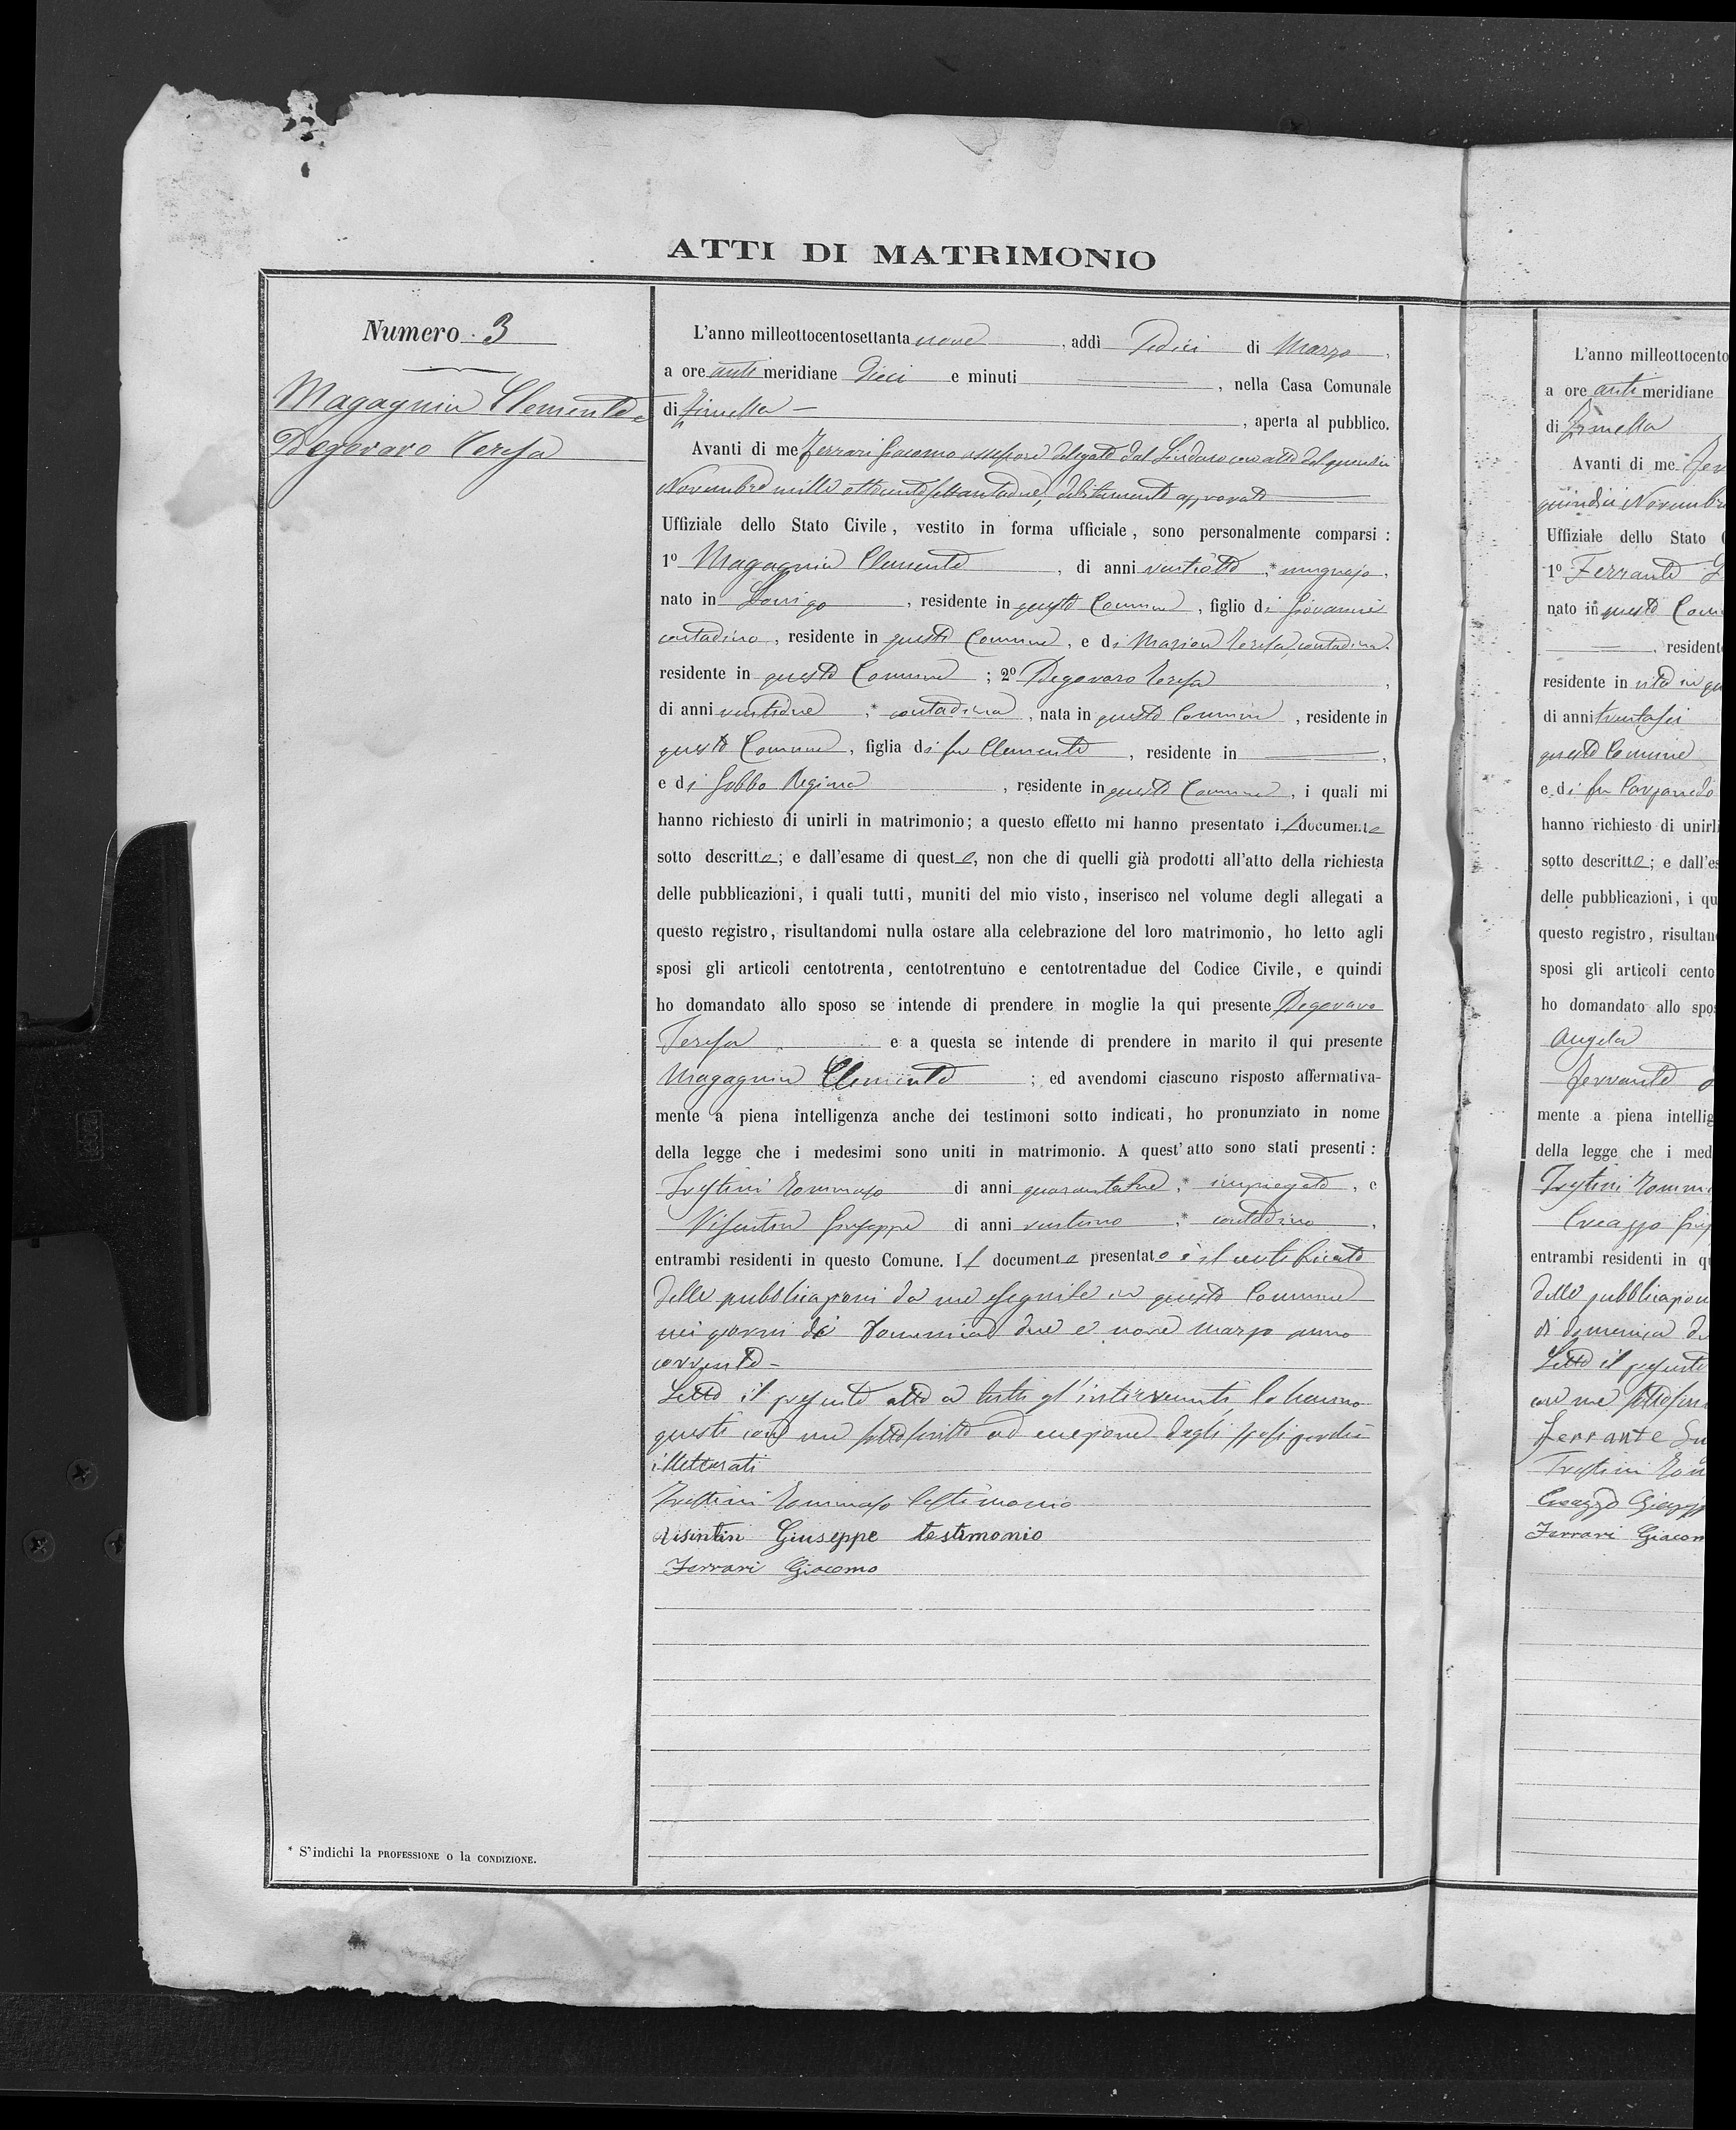 ATTI DI MATRIMONIO
Numero 3
Magagnin Clemente e
Degovaro Teresa
* S'indichi la PROFESSIONE o la CONDIZIONE.
L'anno milleottocentosettanta nove, addì dodici di Marzo,
a ore anti meridiane dieci e minuti, nella Casa Comunale
di Zimella, aperta al pubblico.
Avanti di me Ferrari Giacomo assessore delegato dal Sindaco con atto del quindici
Novembre mille ottocentosettantadue, debitamente approvato
Uffiziale dello Stato Civile, vestito in forma ufficiale, sono personalmente comparsi :
1º Magagnin Clemente, di anni ventiotto, * mugnajo,
nato in Lonigo, residente in questo Comune, figlio di Giovanni
contadino, residente in questo Comune, e di Teresa, contadina,
residente in questo Comune ; 2º Degovaro Teresa,
di anni ventidue, * contadina, nata in questo Comune, residente in
questo Comune, figlia di fu Clemente, residente in,
e di Gobbo Regina, residente in questo Comune, i quali mi
hanno richiesto di unirli in matrimonio; a questo effetto mi hanno presentato il documento
sotto descritto; e dall'esame di questo, non che di quelli già prodotti all'atto della richiesta
delle pubblicazioni, i quali tutti, muniti del mio visto, inserisco nel volume degli allegati a
questo registro, risultandomi nulla ostare alla celebrazione del loro matrimonio, ho letto agli
sposi gli articoli centotrenta, centotrentuno e centotrentadue del Codice Civile, e quindi
ho domandato allo sposo se intende di prendere in moglie la qui presente Degovaro
Teresa e a questa se intende di prendere in marito il qui presente
Magagnin Clemente ; ed avendomi ciascuno risposto affermativa-
mente a piena intelligenza anche dei testimoni sotto indicati, ho pronunziato in nome
della legge che i medesimi sono uniti in matrimonio. A quest'atto sono stati presenti :
Trestini Tommaso di anni quarantatre, * impiegato, e
Visentin Giuseppe di anni ventuno, * contadino,
entrambi residenti in questo Comune. Il documento presentato è il certificato
delle pubblicazioni da me eseguite in questo Comune
nei giorni di Domenica due e nove marzo anno
corrente
Letto il presente atto a tutti gl'intervenuti, lo hanno
questi con me sottoscritto ad eccezione degli sposi perchè
illetterati
Trestini Tommaso testimonio
Visintin Giuseppe testimonio
Ferrari Giacomo
L'anno milleottocento
a ore anti meridiane
di Zimella
Avanti di me Fer
quindici Novembre
Uffiziale dello Stato
1º Ferrante
nato in questo Com
, resident
residente in vita in qu
di anni trentasei
questo Comune
e di fu
hanno richiesto di unirli
sotto descritto; e dall'es
delle pubblicazioni, i qu
questo registro, risultan
sposi gli articoli cento
ho domandato allo spo
Angela
Ferrante
mente a piena intellig
della legge che i med
Trestini Tomm
Creazzo Giu
entrambi residenti in q
delle pubblicazion
di domenica du
Letto il presente
con me sottoscri
Ferrante
Trestini Tom
Creazzo Giusepp
Ferrari Giacom